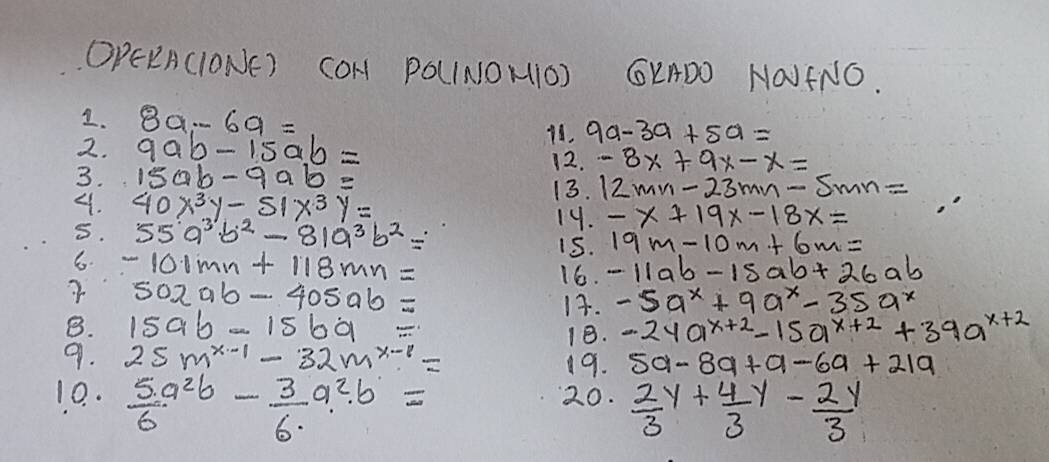 OPERACIONES CON POLINOMIOS GRADO NOVENO.
1. 8a - 6a =
2. 9ab - 15ab =
3. 15ab - 9ab =
4. 40x³y - 51x³y =
5. 55a³b² - 81a³b² =
6. -101mn + 118mn =
7 502ab - 405ab =
8. 15ab - 15ba =
9. 25m^(x-1) - 32m^(x-1) =
10. 5/6 a²b - 3/6 a²b =
11. 9a - 3a + 5a =
12. -8x + 9x - x =
13. 12mn - 23mn - 5mn =
14. -x + 19x - 18x =
15. 19m - 10m + 6m =
16. -11ab - 15ab + 26ab
17. -5a^x + 9a^x - 35a^x
18. -24a^(x+2) - 15a^(x+2) + 39a^(x+2)
19. 5a - 8a + a - 6a + 21a
20. 2/3 y + 4/3 y - 2/3 y